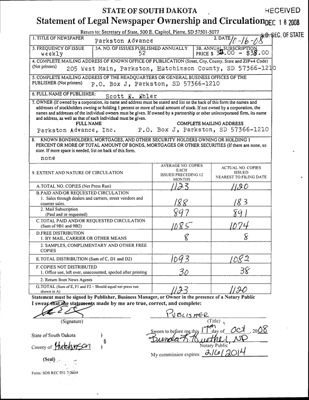 STATE OF SOUTH DAKOTA
RECEIVED
Statement of Legal Newspaper Ownership and Circulation
DEC 18 2008
Return to: Secretary of State, 500 E. Capitol, Pierre, SD 57501-5077
SEC. OF STATE
1. TITLE OF NEWSPAPER
Parkston Advance
2. DATE
3. FREQUENCY OF ISSUE
weekly
3A. NO. OF ISSUES PUBLISHED ANNUALLY
52
3B. ANNUAL SUBSCRIPTION
PRICE
4. COMPLETE MAILING ADDRESS OF KNOWN OFFICE OF PUBLICATION (Street, City, County, State and ZIP+4 Code)
(Not printers)
205 West Main, Parkston, Hutchinson County, SD 57366-1210
5. COMPLETE MAILING ADDRESS OF THE HEADQUARTERS OR GENERAL BUSINESS OFFICES OF THE
PUBLISHER (Not printer)
P.O. Box J, Parkston, SD 57366-1210
6. FULL NAME OF PUBLISHER:
Scott E. Ehler
7. OWNER (If owned by a corporation, its name and address must be stated and list on the back of this form the names and
addresses of stockholders owning or holding 1 percent or more of total amount of stock. If not owned by a corporation, the
names and addresses of the individual owners must be given. If owned by a partnership or other unincorporated firm, its name
and address, as well as that of each individual must be given.
FULL NAME
COMPLETE MAILING ADDRESS
Parkston Advance, Inc.
P.O. Box J, Parkston, SD 57366-1210
8. KNOWN BONDHOLDERS, MORTGAGES, AND OTHER SECURITY HOLDERS OWNING OR HOLDING 1
PERCENT OR MORE OF TOTAL AMOUNT OF BONDS, MORTGAGES OR OTHER SECURITIES (If there are none, so
state. If more space is needed, list on back of this form.
none
9. EXTENT AND NATURE OF CIRCULATION
AVERAGE NO. COPIES
EACH
ISSUES PRECEDING 12
MONTHS
ACTUAL NO. COPIES
ISSUED
NEAREST TO FILING DATE
A. TOTAL NO. COPIES (Net Press Run)
1123
1120
B. PAID AND/OR REQUESTED CIRCULATION
1. Sales through dealers and carriers, street vendors and
counter sales.
188
183
2. Mail Subscription
(Paid and or requested)
897
891
C. TOTAL PAID AND/OR REQUESTED CIRCULATION
(Sum of 9B1 and 9B2)
1085
1074
D. FREE DISTRIBUTION
1. BY MAIL, CARRIER OR OTHER MEANS
8
8
2. SAMPLES, COMPLIMENTARY AND OTHER FREE
COPIES
E. TOTAL DISTRIBUTION (Sum of C, D1 and D2)
1093
1082
F. COPIES NOT DISTRIBUTED
1. Office use, left over, unaccounted, spoiled after printing
30
38
2. Return from News Agents
G. TOTAL (Sum of E, F1 and F2 - Should equal net press run
shown in A)
1123
1120
Statement must be signed by Publisher, Business Manager, or Owner in the presence of a Notary Public
I swear that the statements made by me are true, correct, and complete:
Publisher
(Signature)
(Title)
State of South Dakota
County of Hutchinson
Sworn to before me this 17th day of Oct 2008
Notary Public
(Seal)
My commission expires: 2/6/2014